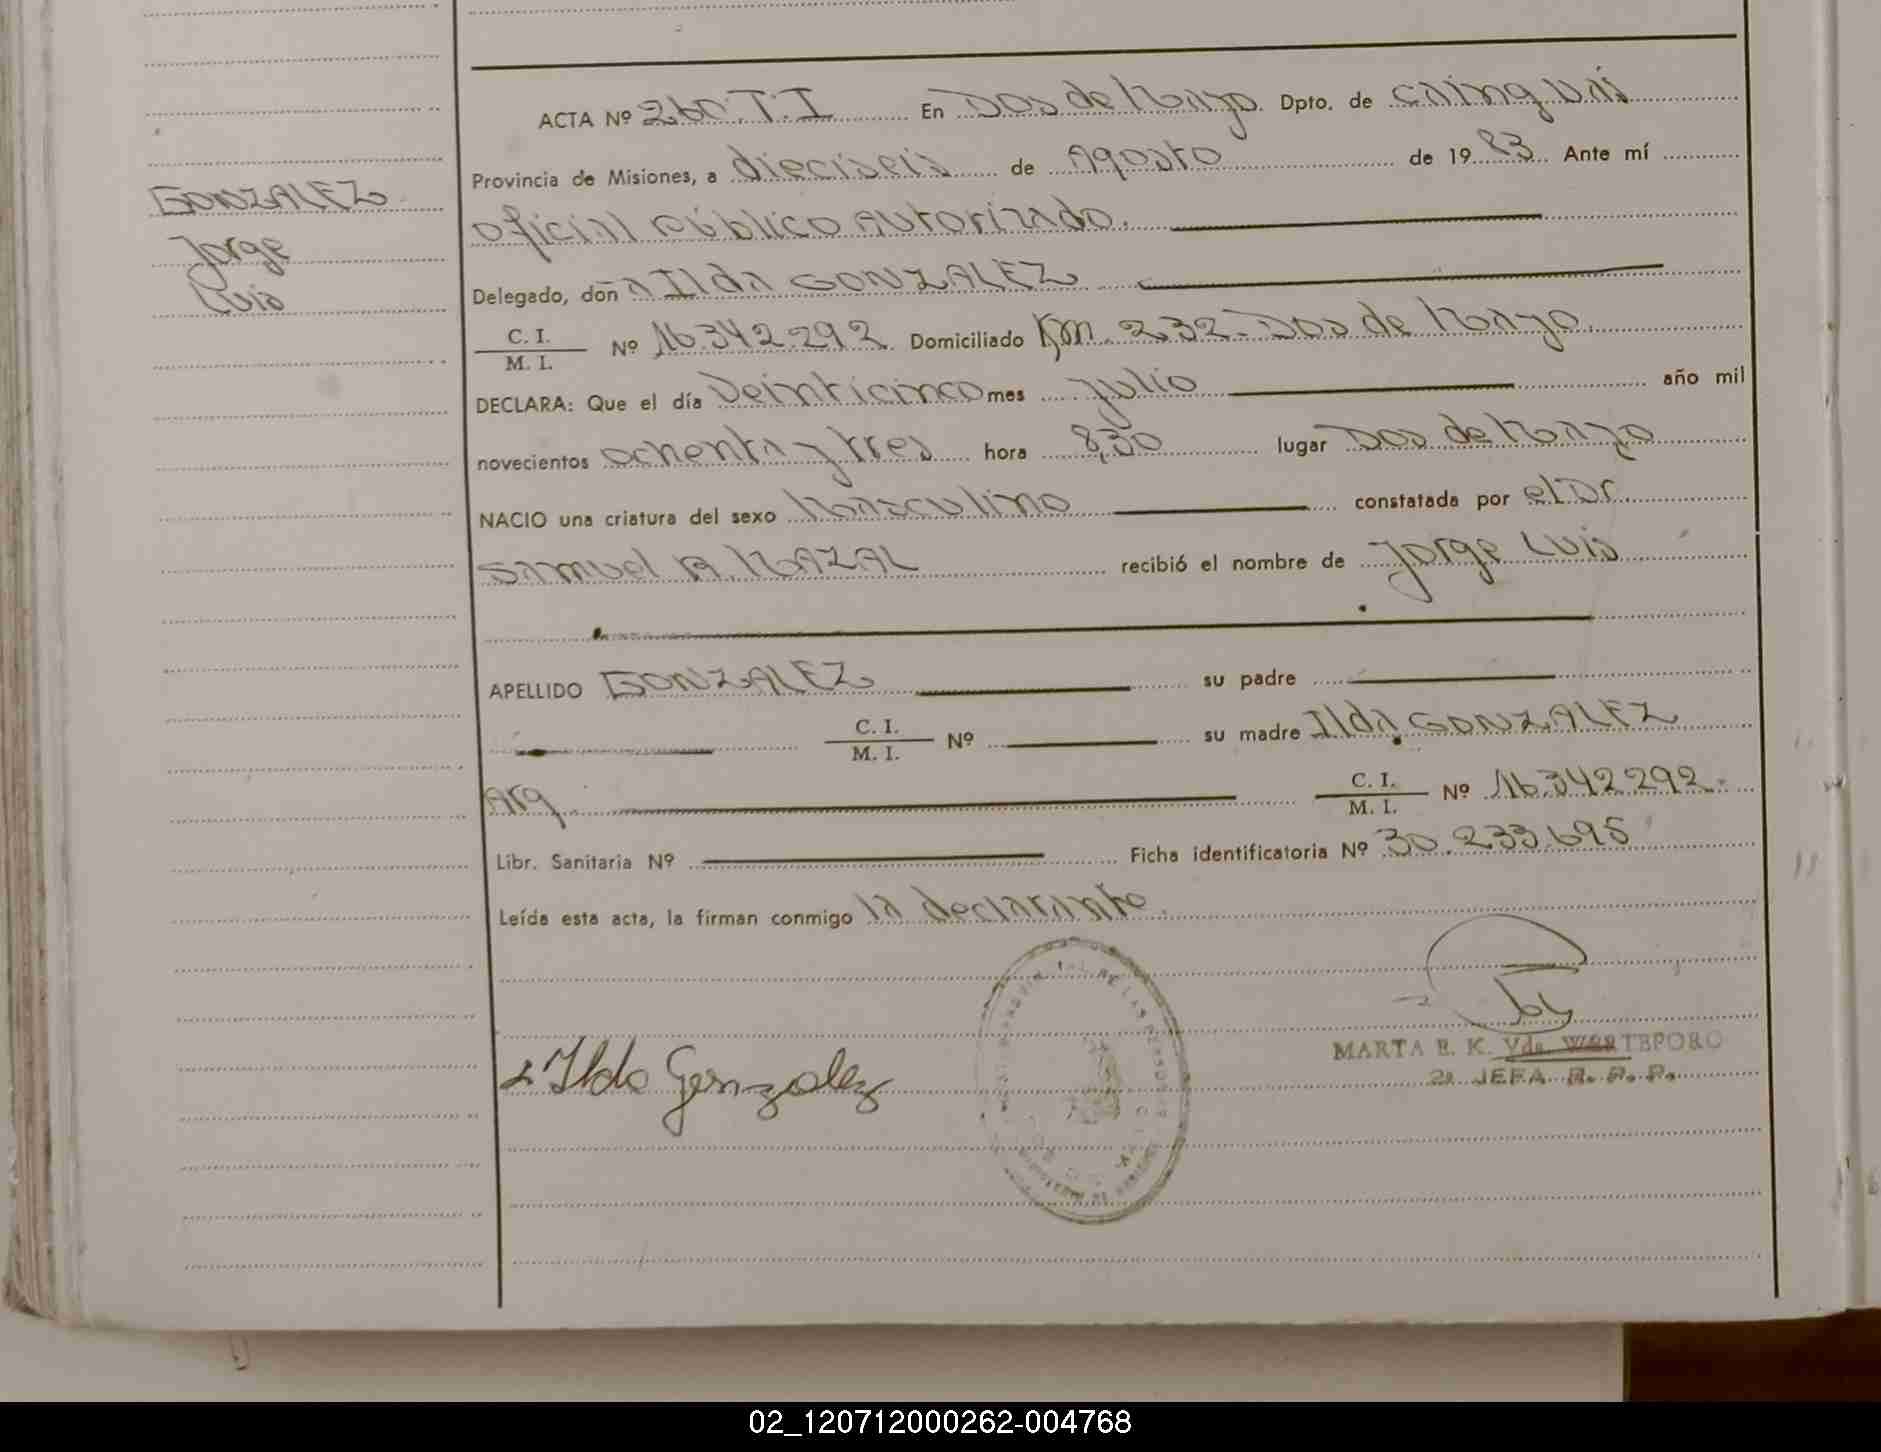 GONZALEZ
Jorge
Luis
ACTA Nº 260.T.I En Dos de Mayo. Dpto. de Cainguás
Provincia de Misiones, a dieciseis de Agosto de 1983 Ante mí
Oficial Público Autorizado.
Delegado, don a Ilda GONZALEZ
C. I.
M. I. Nº 16.342.292 Domiciliado Km. 232-Dos de Mayo.
DECLARA: Que el día Veinticinco mes Julio año mil
novecientos ochenta y tres hora 8,30 lugar Dos de Mayo
NACIO una criatura del sexo Masculino constatada por el Dr.
Samuel A. MAZAL recibió el nombre de Jorge Luis
APELLIDO GONZALEZ su padre
C. I.
M. I. Nº su madre Ilda GONZALEZ
Arg. C. I.
M. I. Nº 16.342.292.
Libr. Sanitaria Nº Ficha identificatoria Nº 30.233.695
Leída esta acta, la firman conmigo la declarante.
Ilda Gonzalez
MARTA E. K. Vda. TEPORO
2a. JEFA R. P. P.
02_120712000262-004768